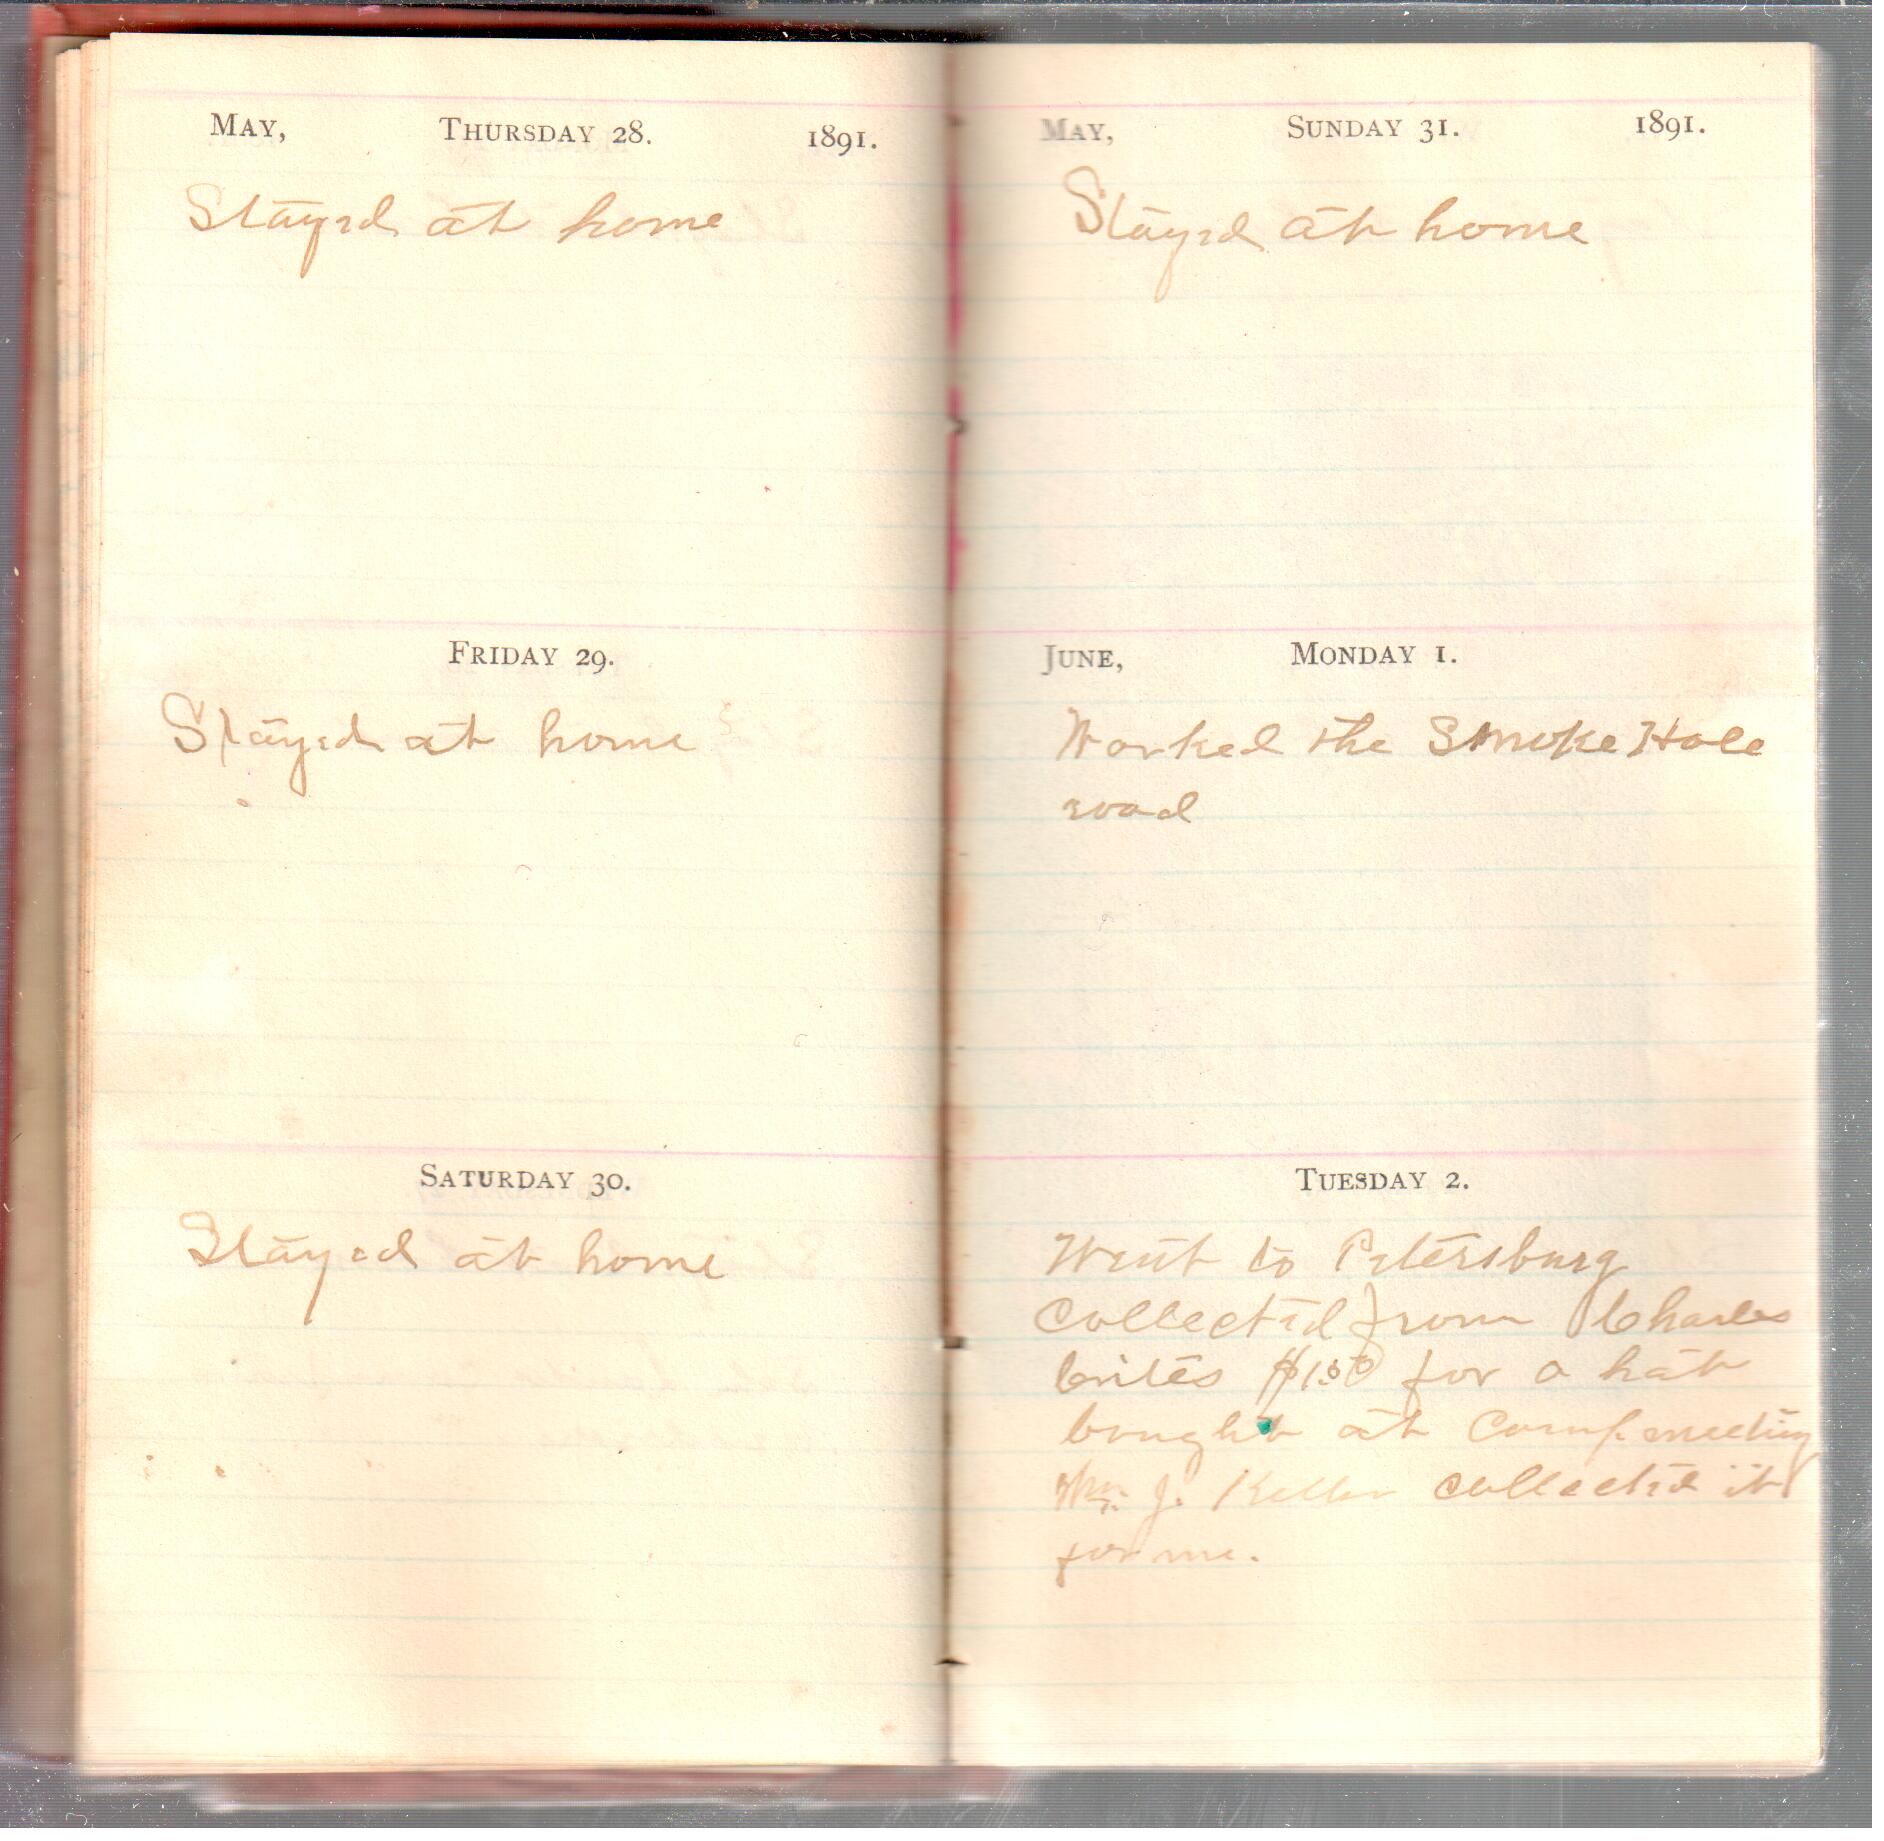 MAY, THURSDAY 28. 1891.
Stayed at home
FRIDAY 29.
Stayed at home
SATURDAY 30.
Stayed at home
MAY, SUNDAY 31. 1891.
Stayed at home
JUNE, MONDAY 1.
Worked the Smoke Hole
road
TUESDAY 2.
Went to Petersburg
Collected from Charles
$1.50 for a hat
bought at Camp meeting
Wm. J. Keller collected it
for me.